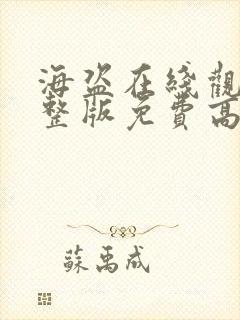 海盗在綫觀
整版免費高
蘇禹成